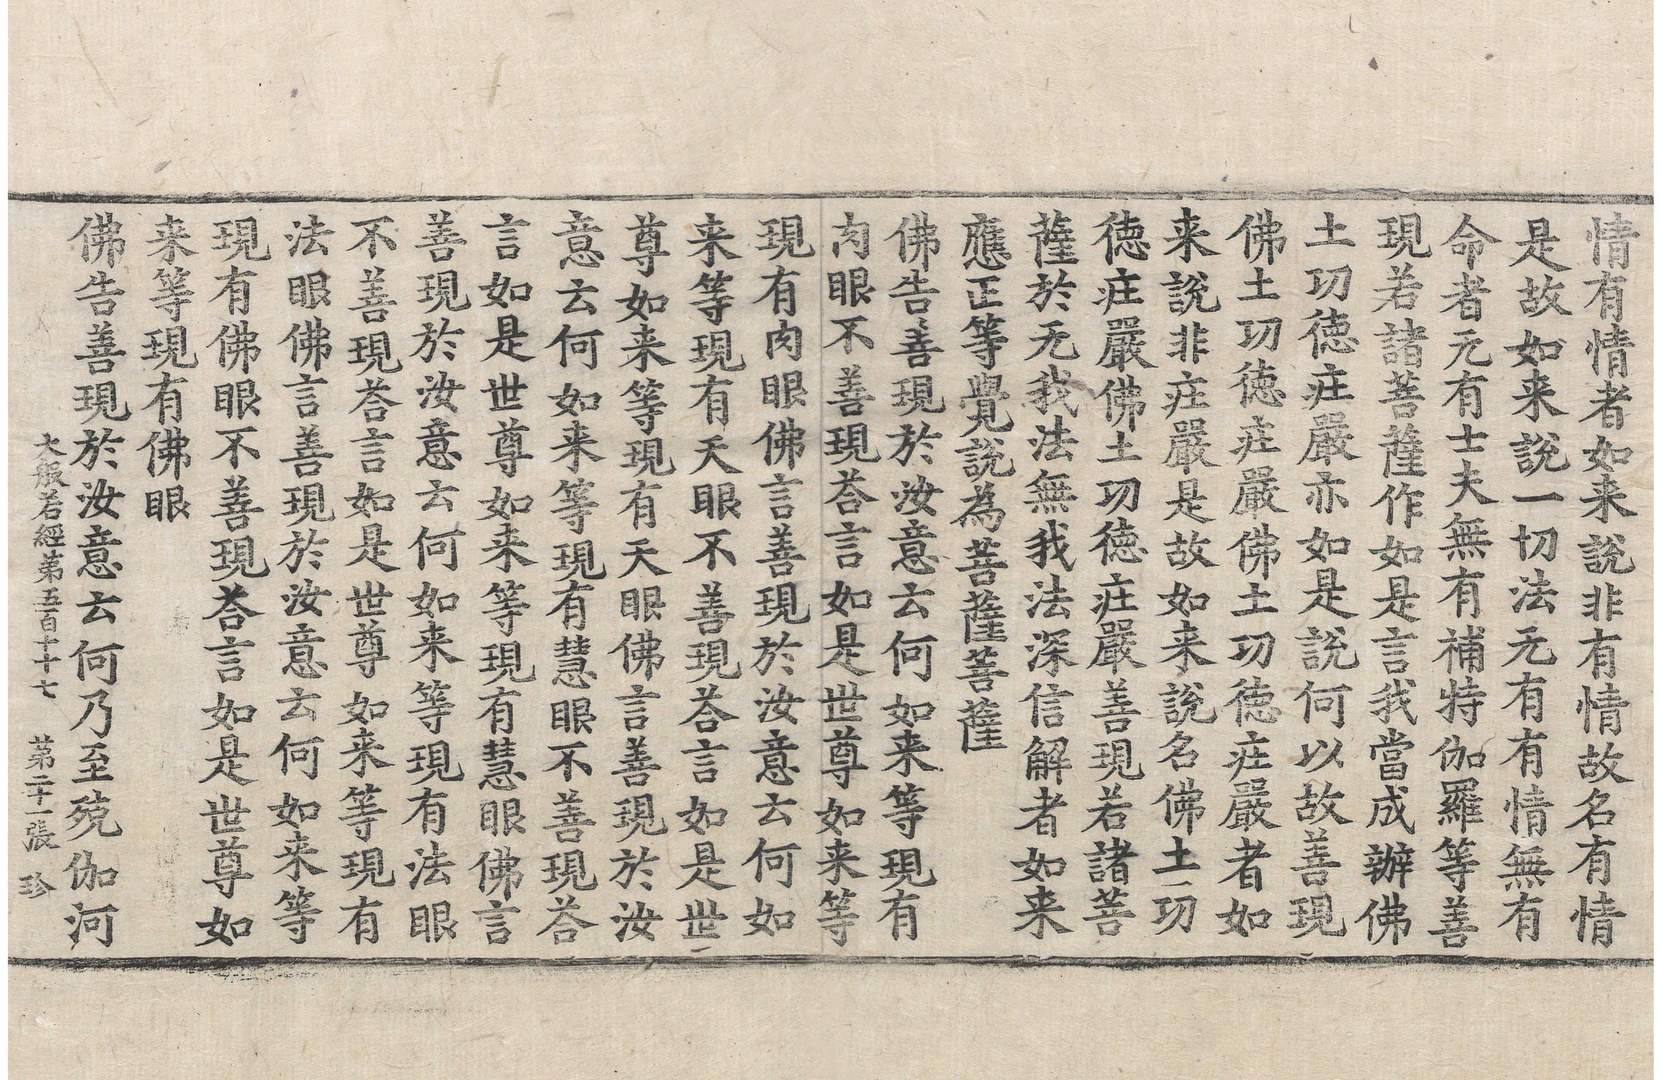 情有情者如来說非有情故名有情
是故如来說一切法无有有情無有
命者无有士夫無有補特伽羅等善
現若諸菩薩作如是言我當成辦佛
土功徳疘嚴亦如是說何以故善現
佛土功徳疘嚴佛土功徳疘嚴者如
来說非疘嚴是故如来說名佛土功
徳疘嚴佛土功徳疘嚴善現若諸菩
薩於无我法無我法深信解者如来
應正等覺說為菩薩菩薩
佛告善現於汝意云何如来等現有
肉眼不善現荅言如是世尊如来等
現有肉眼佛言善現於汝意云何如
来等現有天眼不善現荅言如是世
尊如来等現有天眼佛言善現於汝
意云何如来等現有慧眼不善現荅
言如是世尊如来等現有慧眼佛言
善現於汝意云何如来等現有法眼
不善現荅言如是世尊如来等現有
法眼佛言善現於汝意云何如来等
現有佛眼不善現荅言如是世尊如
来等現有佛眼
佛告善現於汝意云何乃至殑伽河
大般若經第五百七十七 第二十一張 珍